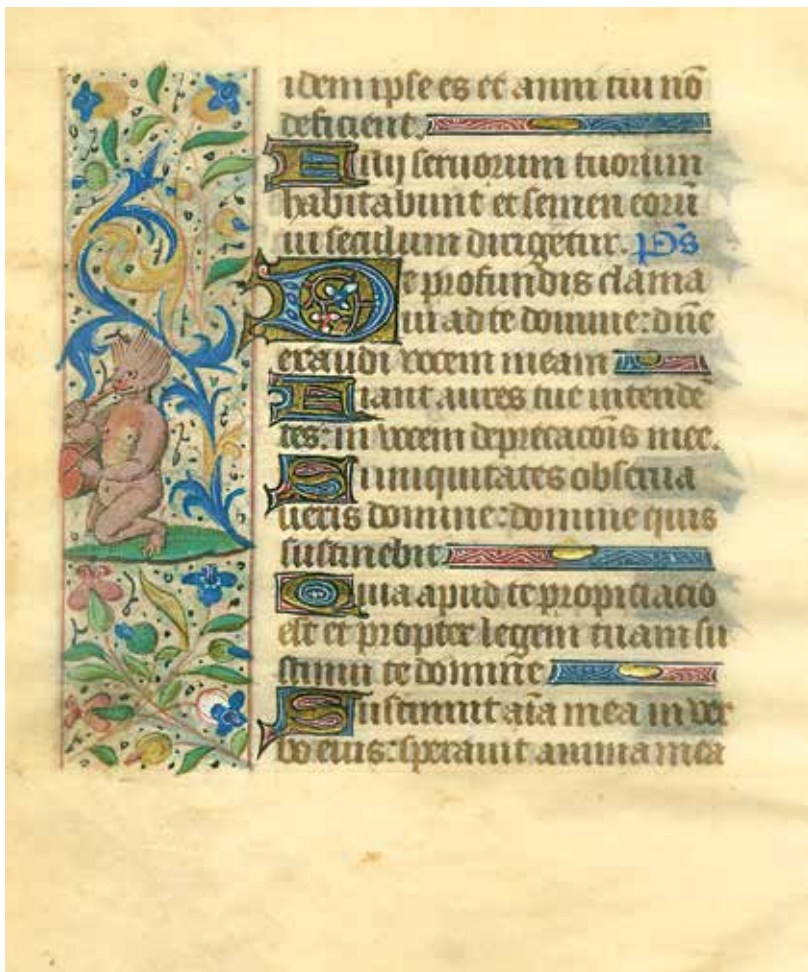 idem ipse es et anni tui nō
deficient.
Filij seruorum tuorum
habitabunt et semen eorū
in seculum dirigetur. p̄s
De profundis clama
ui ad te domine: dn̄e
exaudi vocem meam
Fiant aures tue intende
tes: in vocem deprecacōis mee.
Si iniquitates obserua
ueris domine: domine quis
sustinebit
Quia apud te propiciacio
est et propter legem tuam su
stinui te domin̄e
Sustinuit aīa mea in ver
bo eius: sperauit anima mea